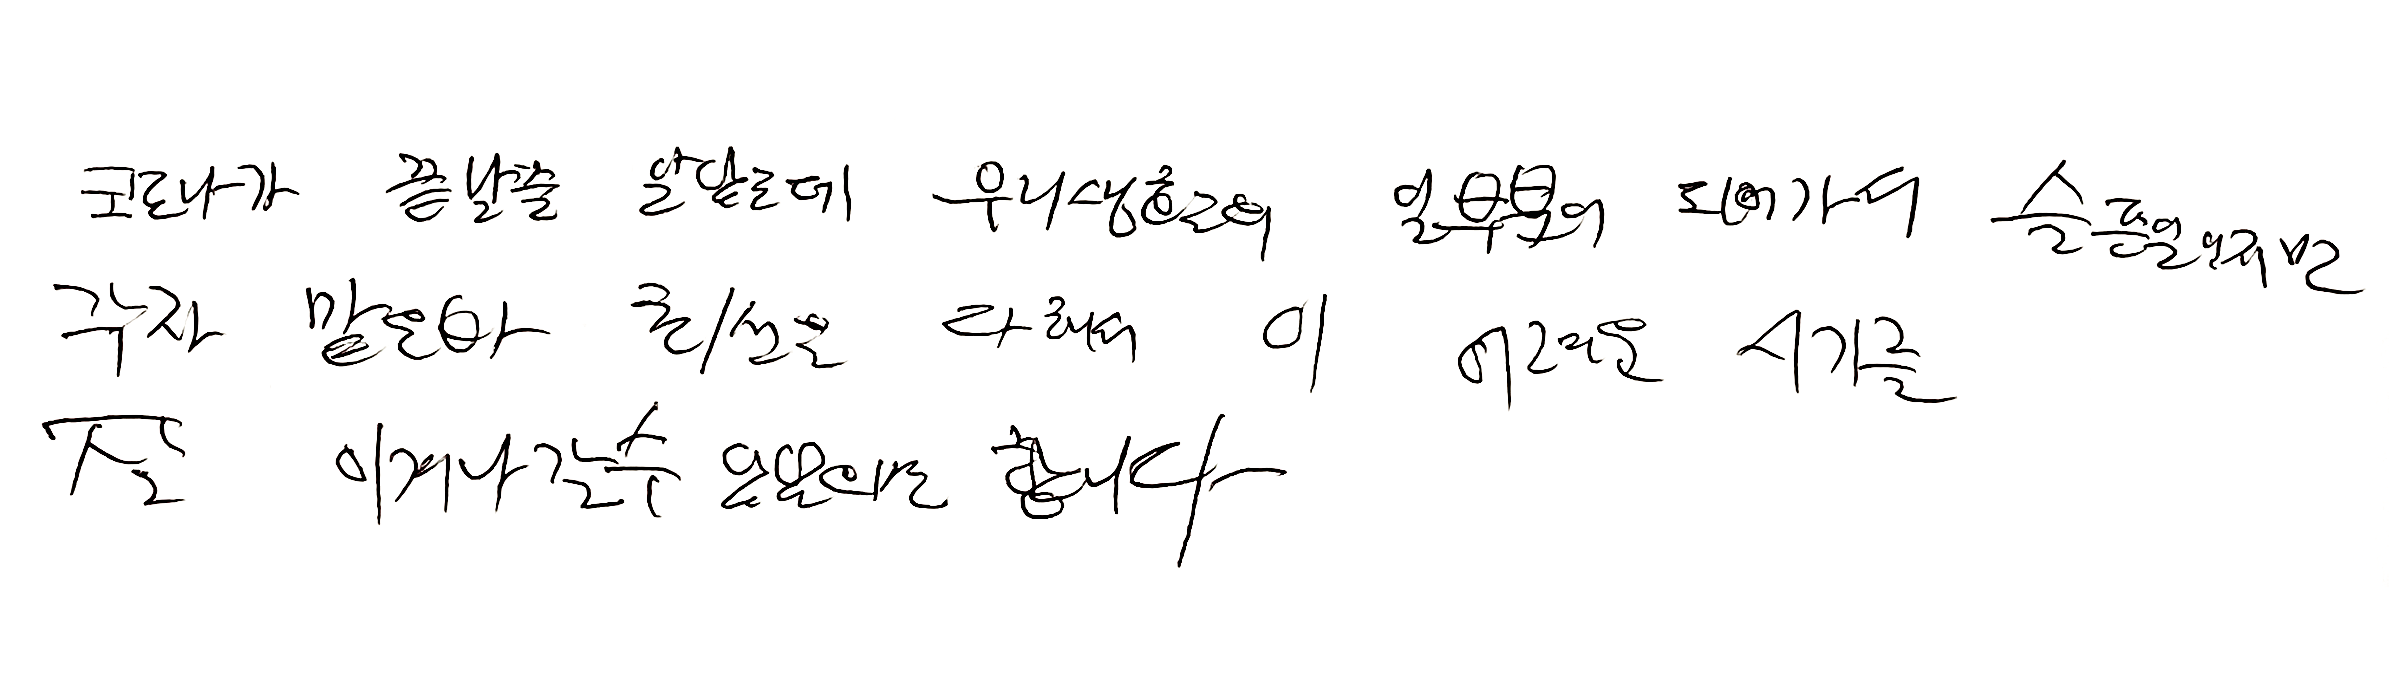 코로나가 끝날줄 알았는데 우리생활의 일부분이 되어가니 슬픈일이지만
각자 맡은바 최선을 다해서 이 어려운 시기를
잘 이겨나갈수 있으면 합니다